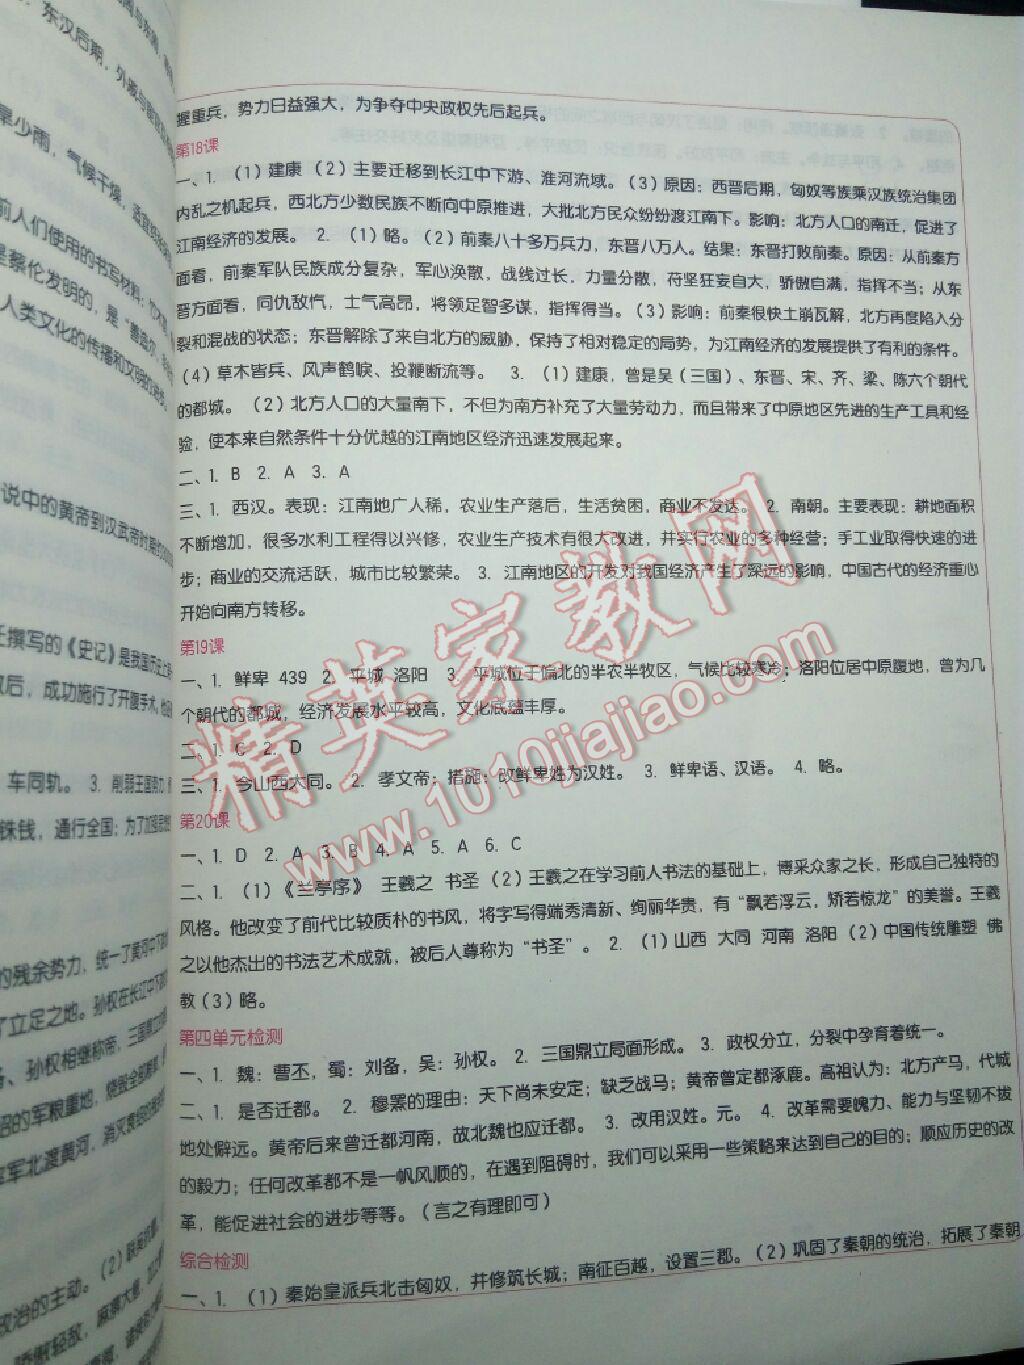 握重兵，势力日益强大，为争夺中央政权先后起兵。
第18课
一、1. （1）建康 （2）主要迁移到长江中下游、淮河流域。（3）原因：西晋后期，匈奴等族乘汉族统治集团
内乱之机起兵，西北方少数民族不断向中原推进，大批北方民众纷纷渡江南下。影响：北方人口的南迁，促进了
江南经济的发展。 2. （1）略。（2）前秦八十多万兵力，东晋八万人。结果：东晋打败前秦。原因：从前秦方
面看，前秦军队民族成分复杂，军心涣散，战线过长，力量分散，苻坚狂妄自大，骄傲自满，指挥不当；从东
晋方面看，同仇敌忾，士气高昂，将领足智多谋，指挥得当。（3）影响：前秦很快土崩瓦解，北方再度陷入分
裂和混战的状态；东晋解除了来自北方的威胁，保持了相对稳定的局势，为江南经济的发展提供了有利的条件。
（4）草木皆兵、风声鹤唳、投鞭断流等。 3. （1）建康，曾是吴（三国）、东晋、宋、齐、梁、陈六个朝代
的都城。（2）北方人口的大量南下，不但为南方补充了大量劳动力，而且带来了中原地区先进的生产工具和经
验，使本来自然条件十分优越的江南地区经济迅速发展起来。
二、1. B 2. A 3. A
三、1. 西汉。表现：江南地广人稀，农业生产落后，生活贫困，商业不发达。 2. 南朝。主要表现：耕地面积
不断增加，很多水利工程得以兴修，农业生产技术有很大改进，并实行农业的多种经营；手工业取得快速的进
步；商业的交流活跃，城市比较繁荣。 3. 江南地区的开发对我国经济产生了深远的影响，中国古代的经济重心
开始向南方转移。
第19课
一、1. 鲜卑 439 2. 平城 洛阳 3. 平城位于偏北的半农半牧区，气候比较寒冷；洛阳位居中原腹地，曾为几
个朝代的都城，经济发展水平较高，文化底蕴丰厚。
二、1. C 2. D
三、1. 今山西大同。 2. 孝文帝；措施：改鲜卑姓为汉姓。 3. 鲜卑语、汉语。 4. 略。
第20课
一、1. D 2. A 3. B 4. A 5. A 6. C
二、1. （1）《兰亭序》 王羲之 书圣（2）王羲之在学习前人书法的基础上，博采众家之长，形成自己独特的
风格。他改变了前代比较质朴的书风，将字写得端秀清新、绚丽华贵，有“飘若浮云，矫若惊龙”的美誉。王羲
之以他杰出的书法艺术成就，被后人尊称为“书圣”。 2. （1）山西 大同 河南 洛阳（2）中国传统雕塑 佛
教（3）略。
第四单元检测
一、1. 魏：曹丕，蜀：刘备，吴：孙权。 2. 三国鼎立局面形成。 3. 政权分立，分裂中孕育着统一。
二、1. 是否迁都。 2. 穆罴的理由：天下尚未安定；缺乏战马；黄帝曾定都涿鹿。高祖认为：北方产马，代城
地处僻远。黄帝后来曾迁都河南，故北魏也应迁都。 3. 改用汉姓。元。 4. 改革需要魄力、能力与坚韧不拔
的毅力；任何改革都不是一帆风顺的，在遇到阻碍时，我们可以采用一些策略来达到自己的目的；顺应历史的改
革，能促进社会的进步等等。（言之有理即可）
综合检测
一、1. （1）秦始皇派兵北击匈奴，并修筑长城；南征百越，设置三郡。（2）巩固了秦朝的统治，拓展了秦朝
精英家教网
www.1010jiajiao.com
东汉后期，外戚与
旱少雨，气候干燥，
前人们使用的书写材料：竹木
是蔡伦发明的，是“
人类文化的传播和文明的
说中的黄帝到汉武帝时
迁撰写的《史记》是我国历史上
后，成功施行了开腹手术。
车同轨。 3. 削弱王国势力
铢钱，通行全国；为了加强
的残余势力，统一了黄河中下
了立足之地。孙权在长江中下
、孙权相继称帝，三国鼎立
的军粮重地，烧毁全部
军北渡黄河，消灭袁绍的
政治的主动。（2）
骄傲轻敌，